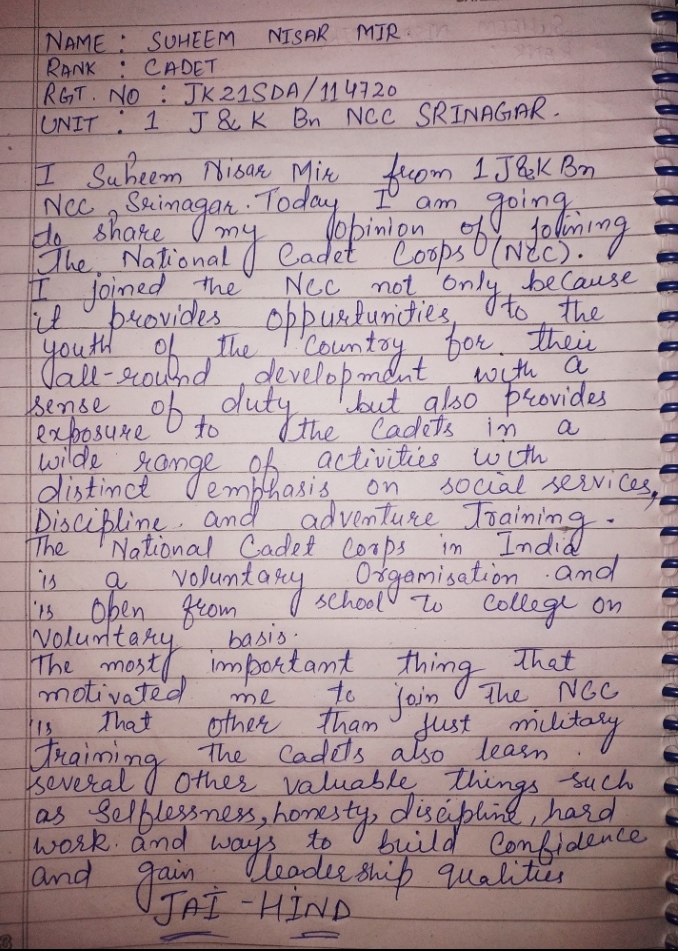 NAME : SUHEEM NISAR MIR
RANK : CADET
RGT. NO : JK21SDA/114720
UNIT : 1 J & K Bn NCC SRINAGAR.
I Suheem Nisar Mir from 1 J&K Bn
Ncc, Srinagar. Today I am going
to share my opinion of joining
The National Cadet Corps (Ncc).
I joined the Ncc not only because
it provides oppurtunities to the
youth of the country for their
all-round development with a
sense of duty but also provides
exposure to the Cadets in a
wide range of activities with
distinct emphasis on social services,
Discipline and adventure Training.
The National Cadet Corps in India
is a voluntary Organisation and
is Open from school to college on
voluntary basis.
The most important thing that
motivated me to join The NCC
is that other than just military
Training The Cadets also learn
several Other valuable things such
as Selflessness, honesty, discipline, hard
work and ways to build Confidence
and gain leadership qualities
JAI - HIND